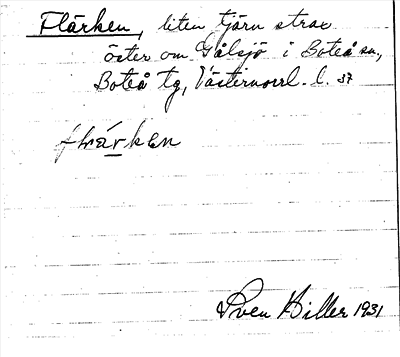 Flärken, liten tjärn strax
öster om Gålsjö i Boteå sn.,
Boteå tg, Västernorrl. l. 37
flrárken
Sven Hiller 1931